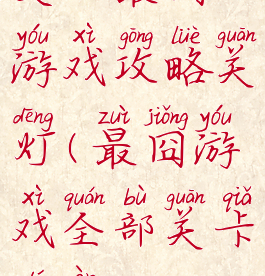 yóu xì gōng lüè guān
游戏攻略关
dēng zuì jiǒng yóu
灯(最囧游
xì quán bù guān qiǎ
戏全部关卡